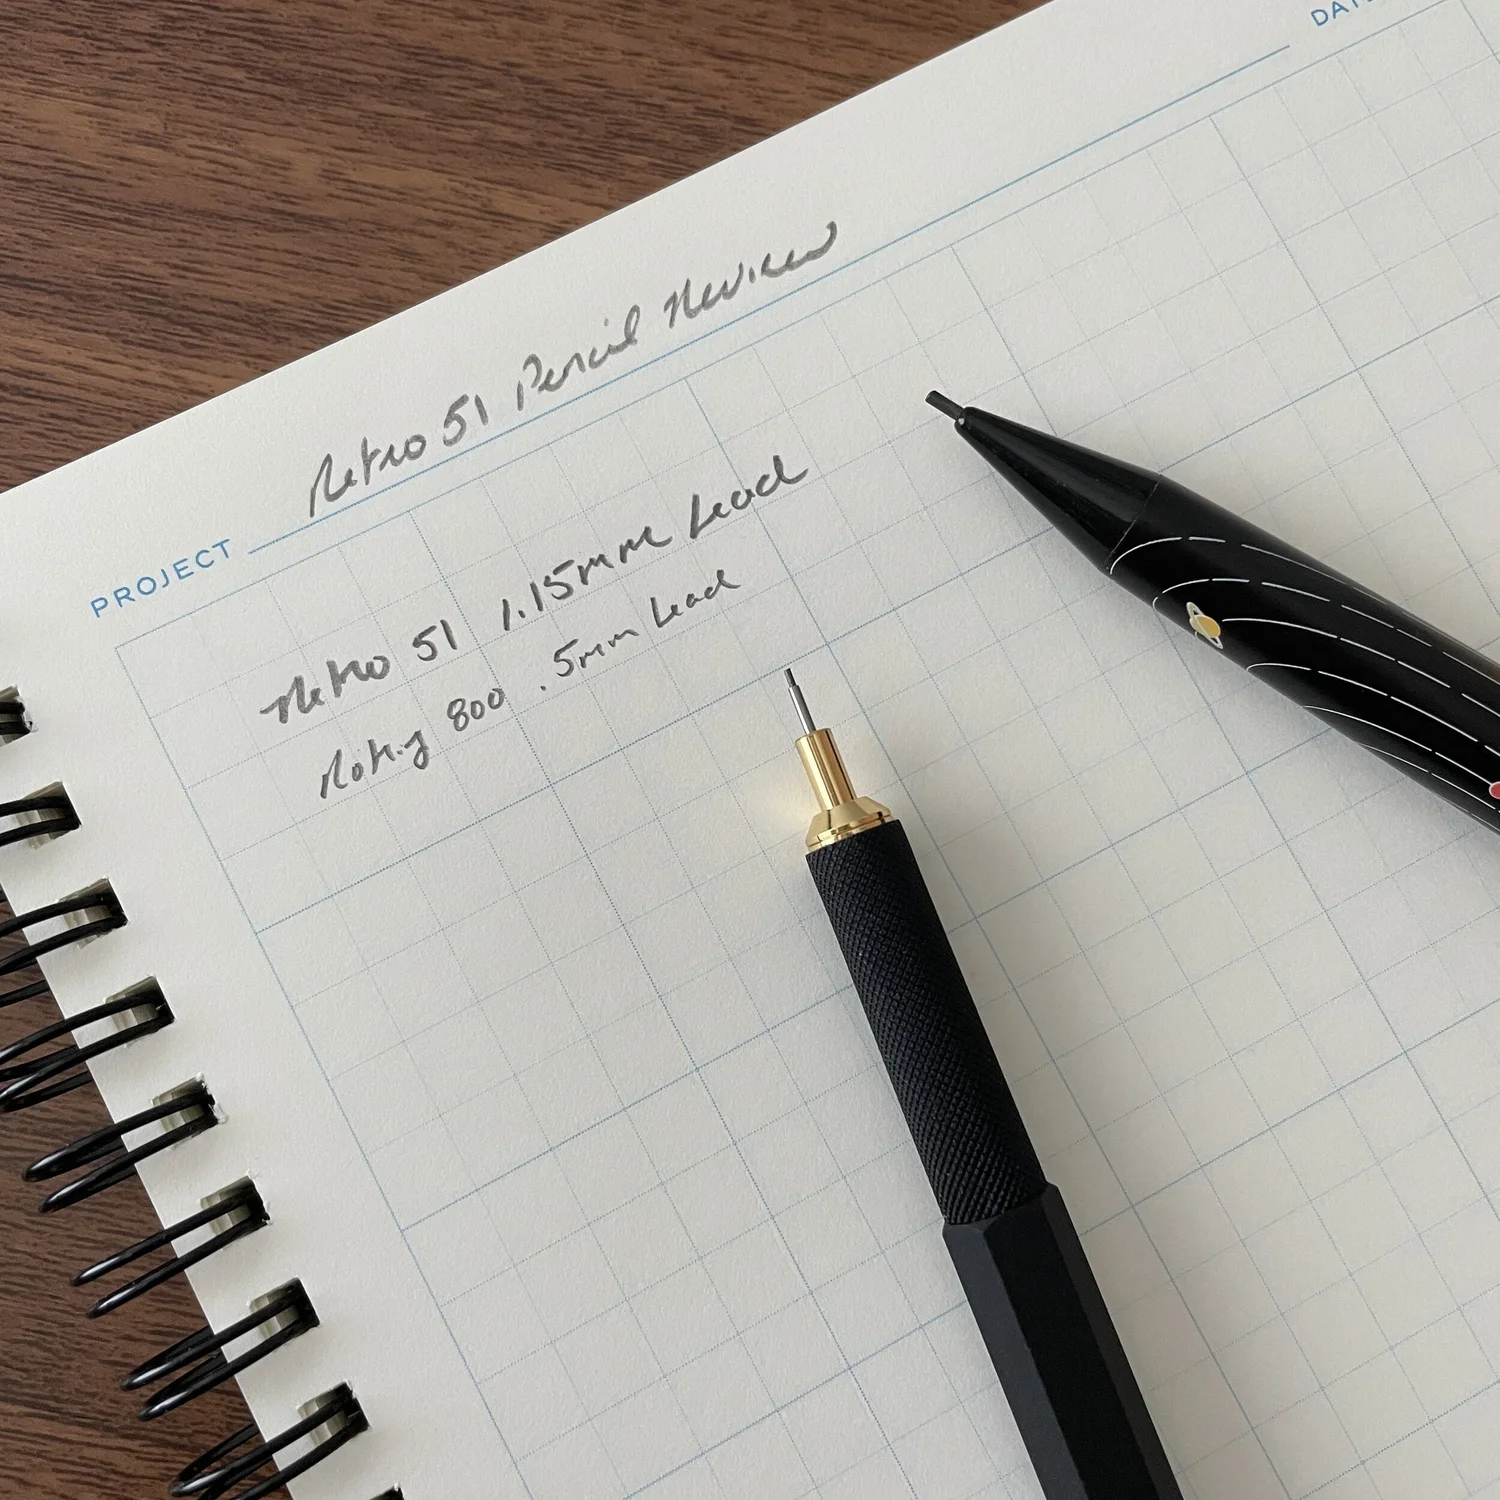 DATE
PROJECT Retro 51 Pencil Review
Retro 51 1.15mm Lead
Rotring 800 .5mm Lead